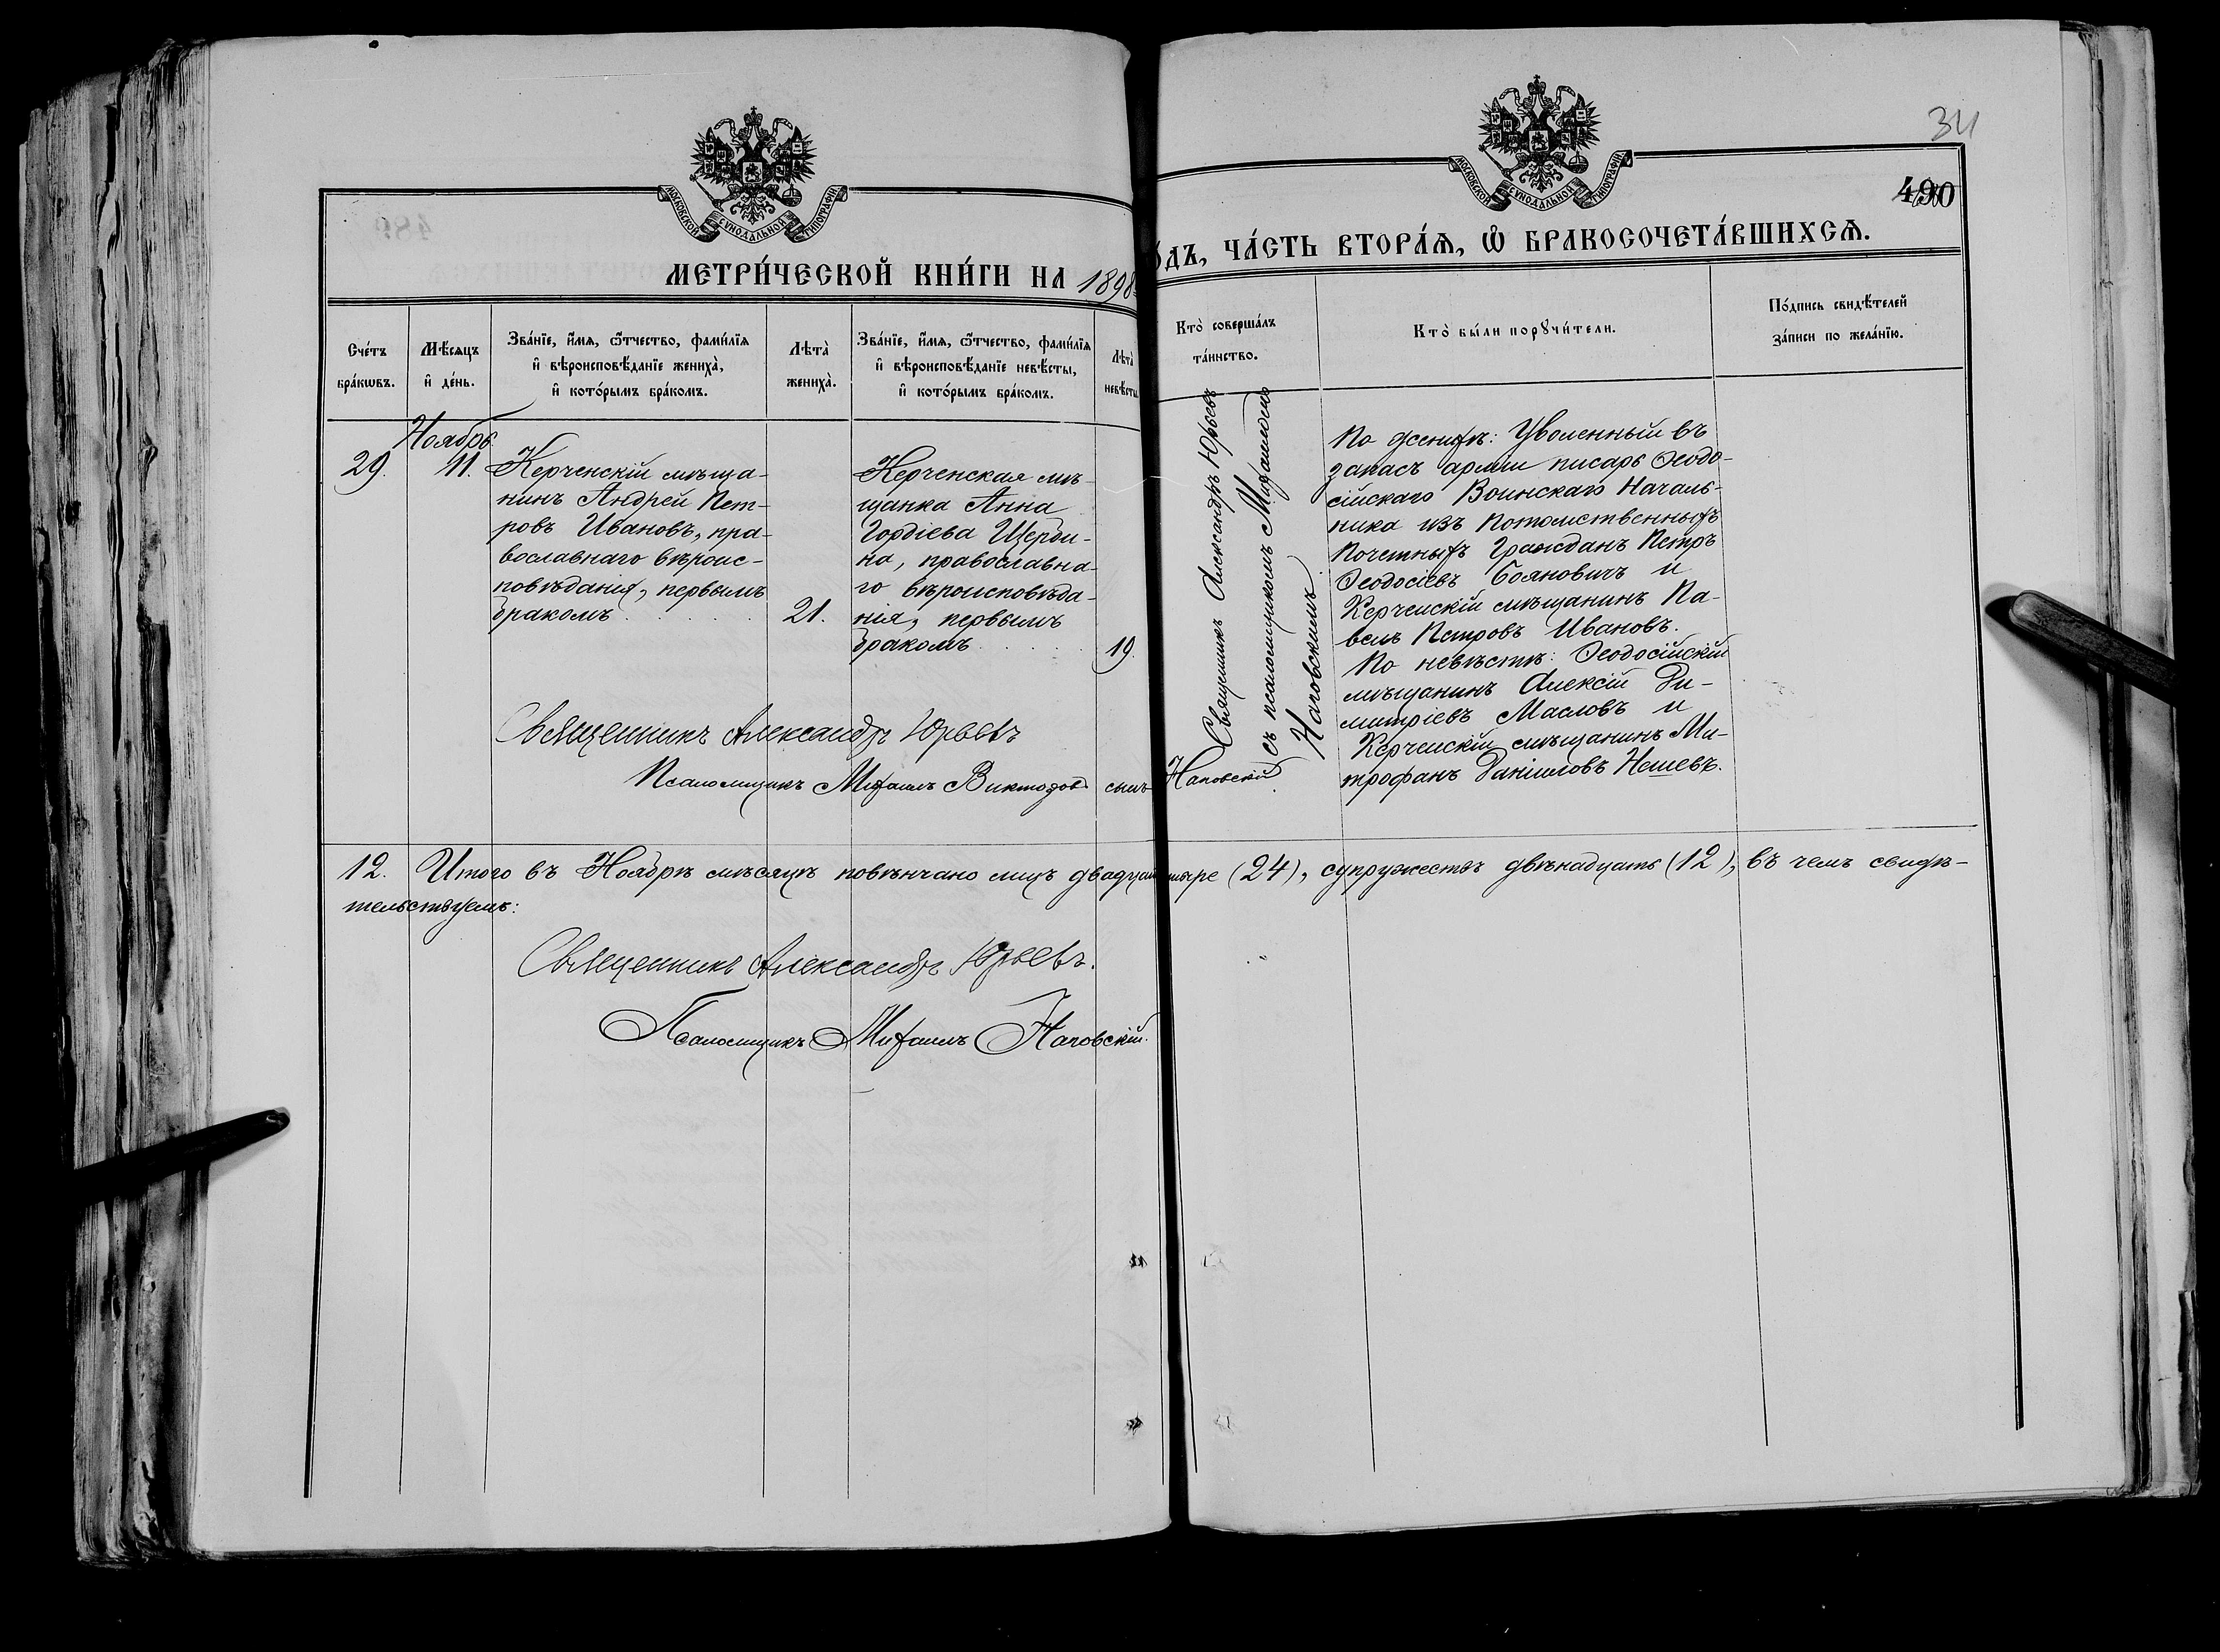 34
490
МОСКОВСКОЙ СѴНОДАЛЬНОЙ ТИПОГРАФІИ
МОСКОВСКОЙ СѴНОДАЛЬНОЙ ТИПОГРАФІИ
МЕТРИ́ЧЕСКОЙ КНИ́ГИ НА 1898
О́ДЪ, ЧА́СТЬ ВТОРА́Ѧ, Ѽ БРАКОСОЧЕТА́ВШИХСѦ.
Сче́тъ
бра́кѡвъ.
Мѣ́сяцъ
и҆ де́нь.
Зва́нїе, и҆́мя, ѻ҆́тчество, фами́лїя
и҆ вѣроисповѣ́данїе жениха̀,
и҆ кото́рымъ бра́комъ.
Лѣта̀
жениха̀.
Зва́нїе, и҆́мя, ѻ҆́тчество, фами́лїя
и҆ вѣроисповѣ́данїе невѣ́сты,
и҆ кото́рымъ бра́комъ.
Лѣта̀
невѣ́сты
Кто̀ соверша́лъ
та́инство.
Кто̀ бы́ли порꙋчи́тели.
По́дпись свидѣ́телей
за́писи по жела́нїю.
Ноябрь
29.
11.
Керченскій мѣща-
нинъ Андрей Пет-
ровъ Ивановъ, пра-
вославнаго вѣроис-
повѣданія, первымъ
бракомъ
21.
Керченская мѣ-
щанка Анна
Гордіева Щерби-
на, православна-
го вѣроисповѣда-
нія, первымъ
бракомъ
19.
Священникъ Александръ Юрьевъ
съ псаломщикомъ Михаиломъ
Наговскимъ.
По женихѣ: Уволенный въ
запасъ арміи писарь Ѳеодо-
сійскаго Воинскаго Началь-
ника изъ Потомственныхъ
Почетныхъ Гражданъ Петръ
Ѳеодосіевъ Бояновичъ и
Керченскій мѣщанинъ Па-
велъ Петровъ Ивановъ.
По невѣстѣ: Ѳеодосійскій
мѣщанинъ Алексій Ди-
митріевъ Масловъ и
Керченскій мѣщанинъ Ми-
трофанъ Даніиловъ Нешевъ.
Священникъ Александръ Юрьевъ
Псаломщикъ Михаилъ Викторовъ сынъ Наговскій
12. Итого въ Ноябрѣ мѣсяцѣ повѣнчано лицъ двадцать четыре (24), супружествъ двѣнадцать (12), въ чемъ свидѣ-
тельствуемъ:
Священникъ Александръ Юрьевъ.
Псаломщикъ Михаилъ Наговскій.